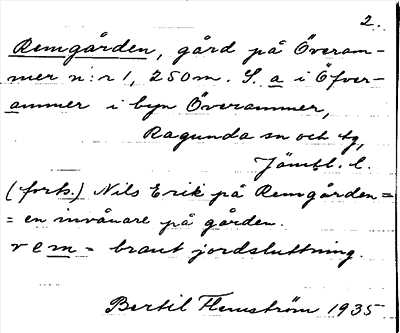 2.
Remgården, gård på Överam-
mer n:r 1, 250m. S. a i Öfver-
ammer i byn Överammer,
Ragunda sn och tg,
Jämtl. l.
(forts.) Nils Erik på Remgården =
= en invånare på gården.
rem = brant jordsluttning.
Bertil Flemström 1935